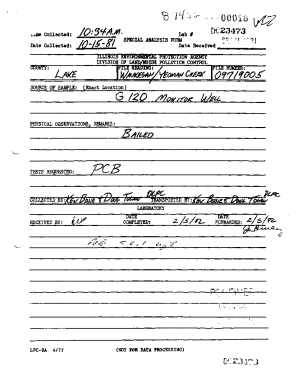 81456 -- 00018
Time Collected: 10:34 A.M. Lab # DC23473
Date Collected: 10-15-81 SPECIAL ANALYSIS FORM Date Received
ILLINOIS ENVIRONMENTAL PROTECTION AGENCY
DIVISION OF LAND/NOISE POLLUTION CONTROL
COUNTY: FILE HEADING: FILE NUMBER:
LAKE WAUKEGAN/YEOMAN CREEK 09719005
SOURCE OF SAMPLE: (Exact Location)
G120 MONITOR WELL
PHYSICAL OBSERVATIONS, REMARKS:
BAILED
TESTS REQUESTED: PCB
DLPC
COLLECTED BY: KEN BOUIE & DOUG TOLAN TRANSPORTED BY: KEN BOUIE & DOUG TOLAN
LABORATORY
RECEIVED BY: DATE COMPLETED: 2/5/82 DATE FORWARDED: 2/5/82
PCB < 0.1
LPC-8A 4/77 (NOT FOR DATA PROCESSING)
DC23473